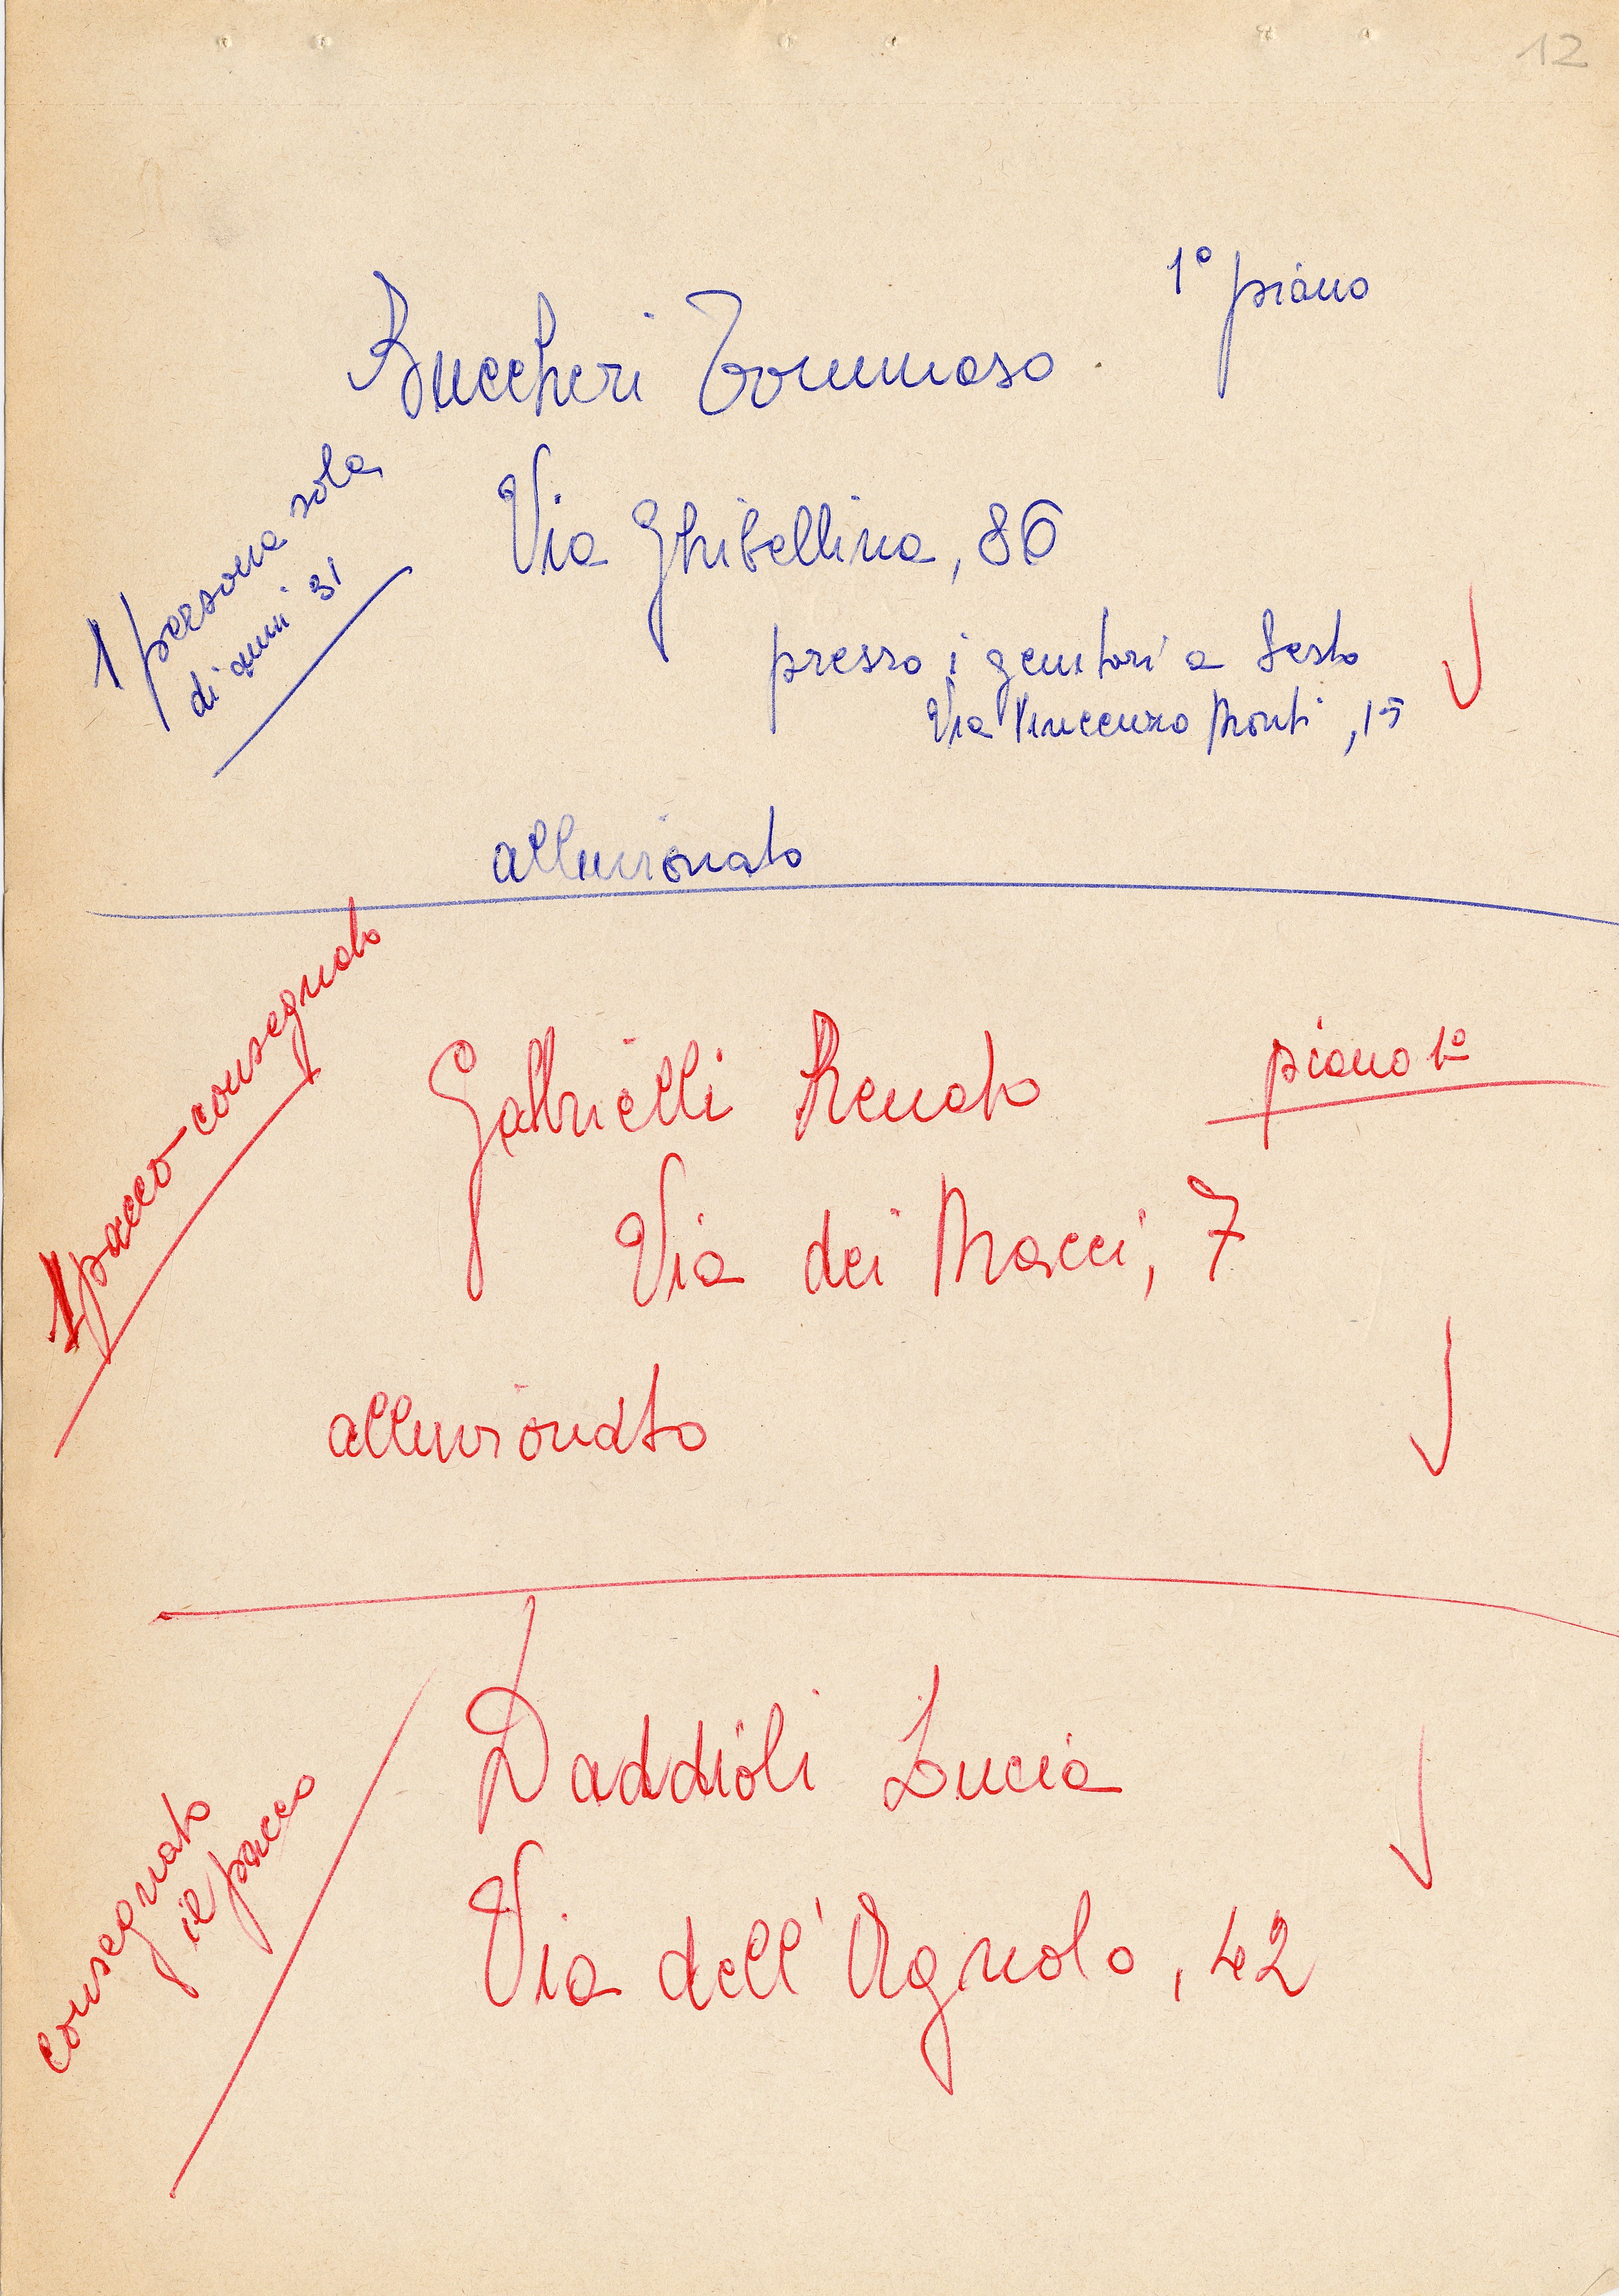 12
1° piano
Buccheri Tommaso
1 persona sola
di anni 31
Via Ghibellina, 86
presso i genitori a Sesto
Via Vincenzo Monti, 15
alluvionato
1 pacco consegnato
Gabbrielli Renato
piano 1°
Via dei Macci, 7
alluvionato
Daddioli Lucia
consegnato
il pacco
Via dell'Agnolo, 42